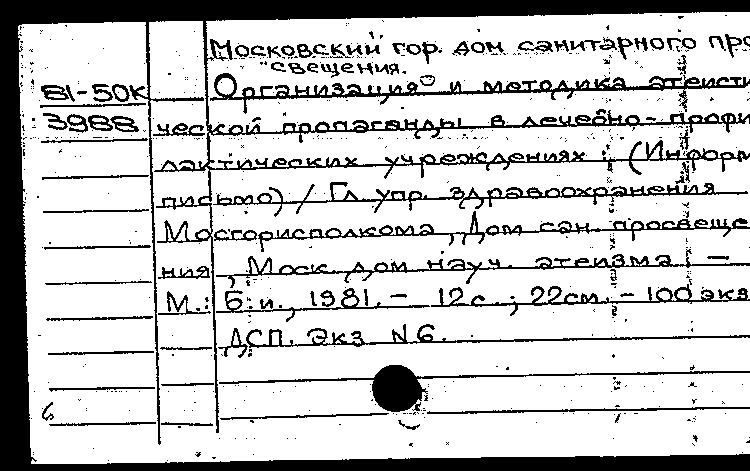 Московский гор. дом санитарного про
свещения.
81-50к Организация и методика атеисти
3988 ческой пропаганды в лечебно-профи
лактических учреждениях : (Информ
письмо) / Гл. упр. здравоохранения
Мосгорисполкома, Дом сан. просвеще
ния, Моск. дом науч. атеизма. —
М.: Б.и., 1981. - 12с.; 22см. - 100 экз
ДСП. Экз N6.
6